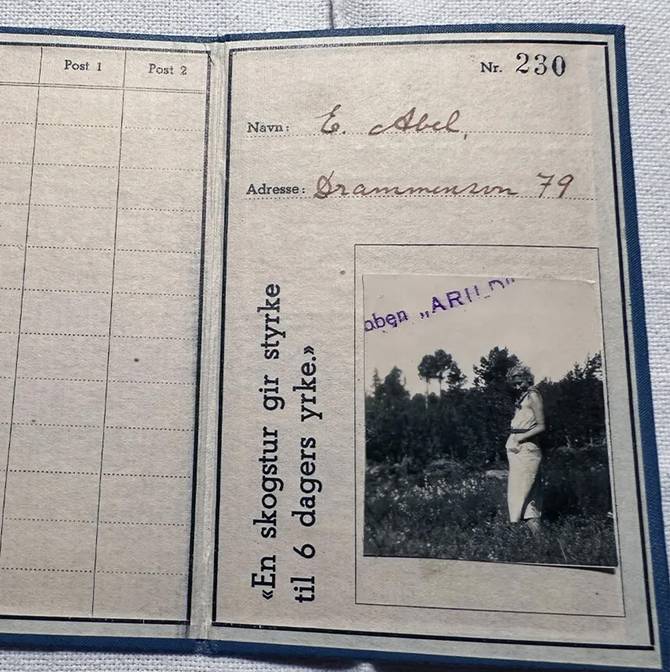 Post 1 Post 2
Nr. 230
Navn: E. Abel,
Adresse: Drammensvn 79
«En skogstur gir styrke
til 6 dagers yrke.»
aben „ARILD"